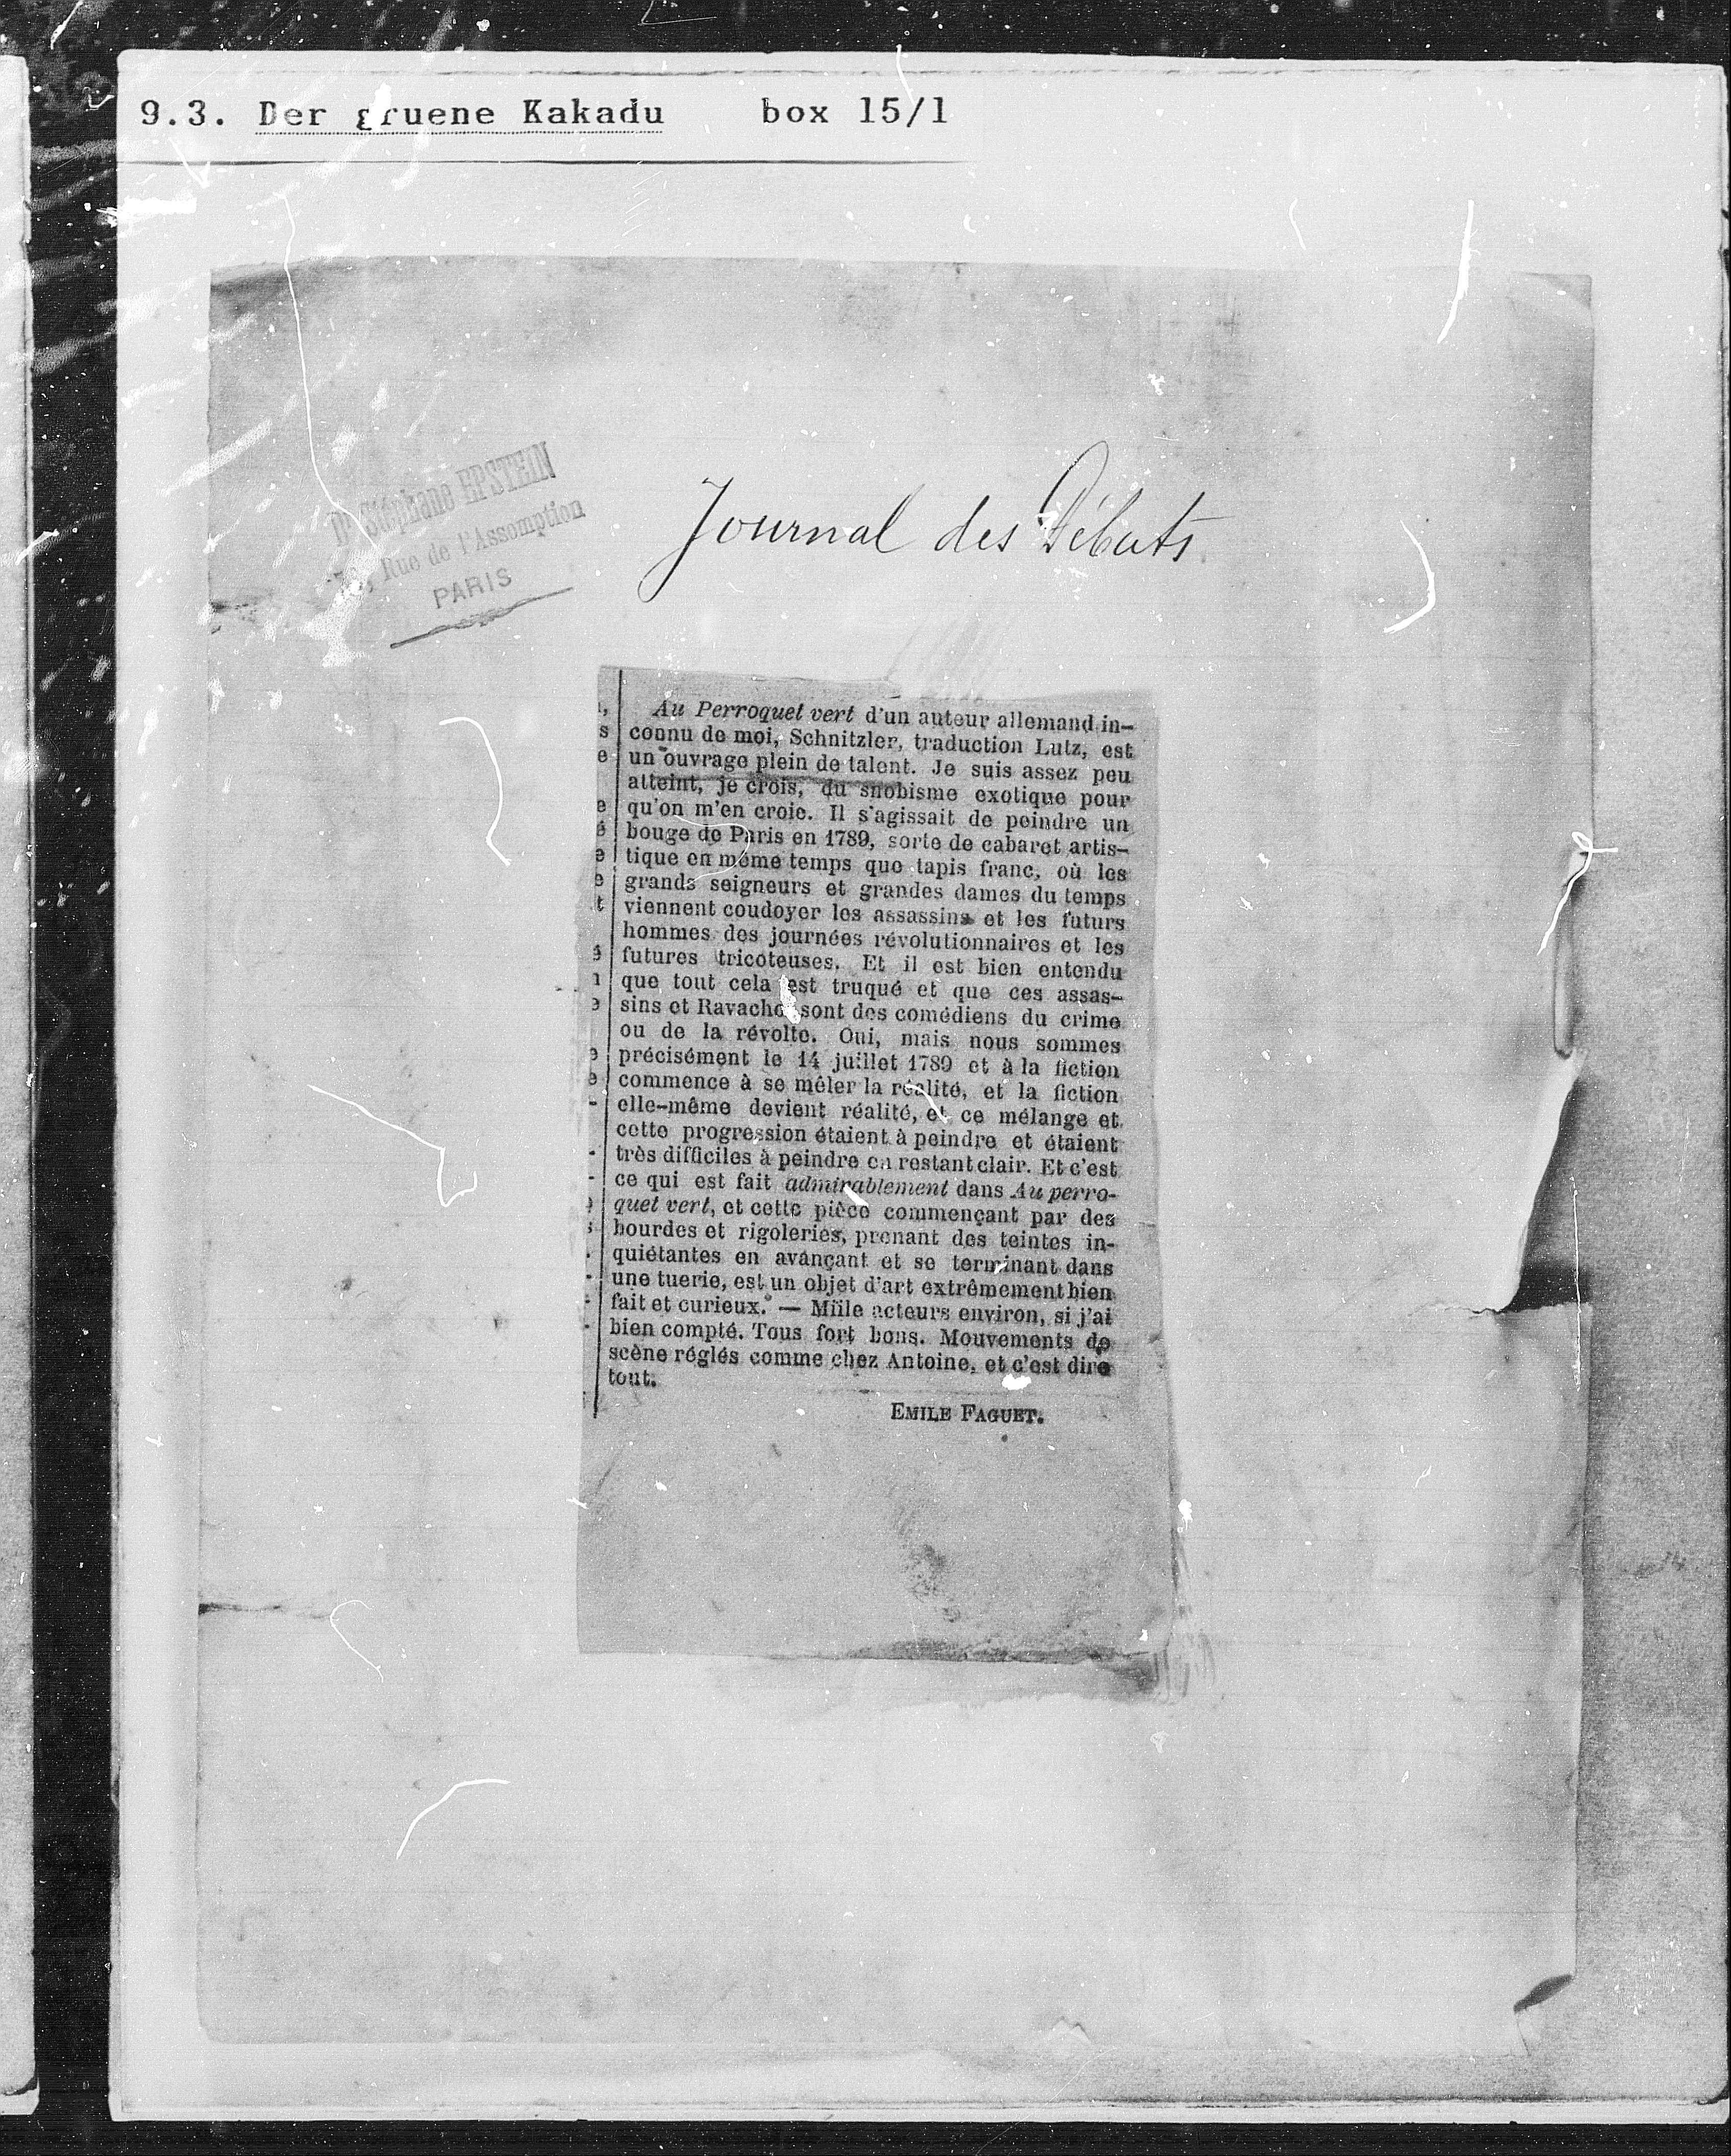 9.3. Der gruene Kakadu box 15/1
Dr Stéphane EPSTEIN
Rue de l'Assomption
PARIS
Journal des Débats
Au Perroquet vert d'un auteur allemand in-
connu de moi, Schnitzler, traduction Lutz, est
un ouvrage plein de talent. Je suis assez peu
atteint, je crois, du snobisme exotique pour
qu'on m'en croie. Il s'agissait de peindre un
bouge de Paris en 1789, sorte de cabaret artis-
tique en même temps que tapis franc, où les
grands seigneurs et grandes dames du temps
viennent coudoyer les assassins et les futurs
hommes des journées révolutionnaires et les
futures tricoteuses. Et il est bien entendu
que tout cela est truqué et que ces assas-
sins et sont des comédiens du crime
ou de la révolte. Oui, mais nous sommes
précisément le 14 juillet 1789 et à la fiction
commence à se mêler la réalité, et la fiction
elle-même devient réalité, et ce mélange et
cette progression étaient à peindre et étaient
très difficiles à peindre en restant clair. Et c'est
ce qui est fait admirablement dans Au perro-
quet vert, et cette pièce commençant par des
bourdes et rigoleries, prenant des teintes in-
quiétantes en avançant et se terminant dans
une tuerie, est un objet d'art extrêmement bien
fait et curieux. — Mille acteurs environ, si j'ai
bien compté. Tous fort bons. Mouvements de
scène réglés comme chez Antoine, et c'est dire
tout.
EMILE FAGUET.